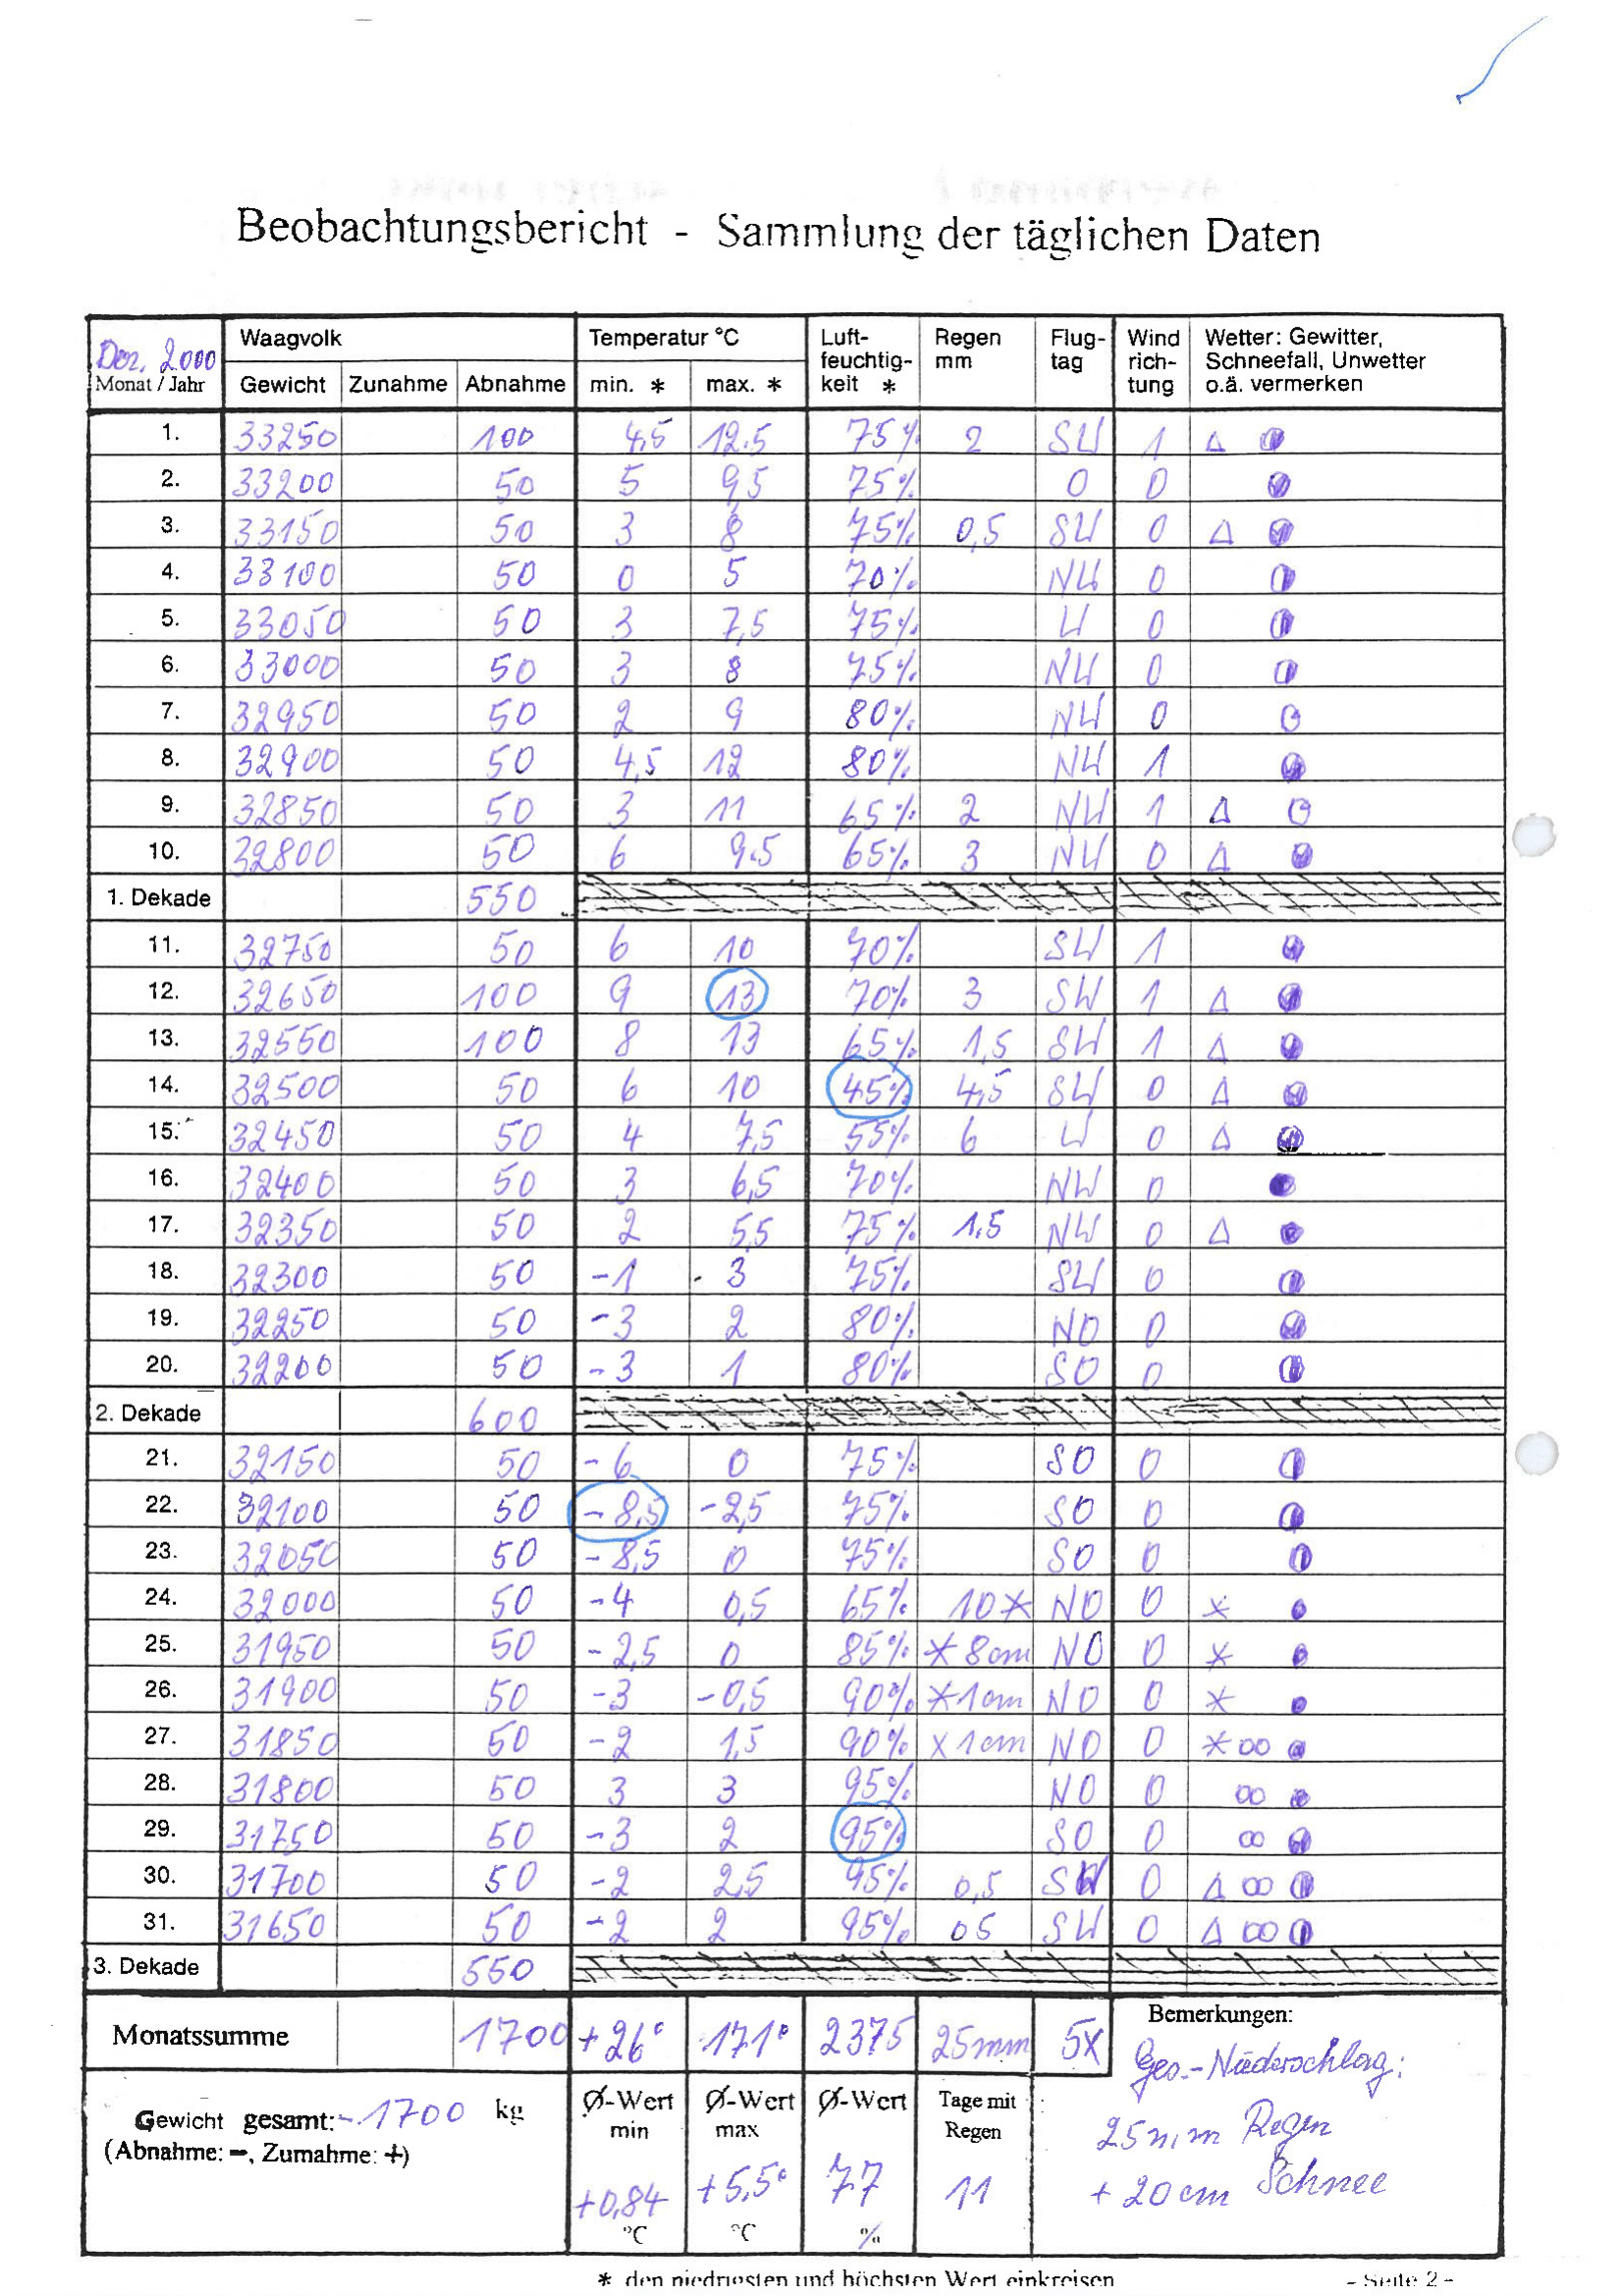 Beobachtungsbericht - Sammlung der täglichen Daten
Dez. 2000 Waagvolk Temperatur °C Luft- Regen Flug- Wind Wetter: Gewitter,
feuchtig- mm tag rich- Schneefall, Unwetter
Monat / Jahr Gewicht Zunahme Abnahme min. * max. * keit * tung o.ä. vermerken
1. 33250 100 4,5 12.5 75% 2 SW 1 Δ
2. 33200 50 5 9,5 75% O 0
3. 33150 50 3 8 75% 0,5 SW 0 Δ
4. 33100 50 0 5 70% NW 0
5. 33050 50 3 7,5 75% W 0
6. 33000 50 3 8 75% NW 0
7. 32950 50 2 9 80% NW 0
8. 32900 50 4,5 12 80% NW 1
9. 32850 50 3 11 65% 2 NW 1 Δ
10. 32800 50 6 9.5 65% 3 NW 0 Δ
1. Dekade 550
11. 32750 50 6 10 70% SW 1
12. 32650 100 9 13 70% 3 SW 1 Δ
13. 32550 100 8 13 65% 1,5 SW 1 Δ
14. 32500 50 6 10 45% 4,5 SW 0 Δ
15. 32450 50 4 7,5 55% 6 W 0 Δ
16. 32400 50 3 6,5 70% NW 0
17. 32350 50 2 5,5 75% 1,5 NW 0 Δ
18. 32300 50 -1 3 75% SW 0
19. 32250 50 -3 2 80% NO 0
20. 32200 50 -3 1 80% SO 0
2. Dekade 600
21. 32150 50 -6 0 75% SO 0
22. 32100 50 -8,5 -2,5 75% SO 0
23. 32050 50 -8,5 0 75% SO 0
24. 32000 50 -4 0,5 65% 10* NO 0 *
25. 31950 50 -2,5 0 85% *8cm NO 0 *
26. 31900 50 -3 -0,5 90% *1cm NO 0 *
27. 31850 50 -2 1,5 90% x1cm NO 0 * ∞
28. 31800 50 3 3 95% NO 0 ∞
29. 31750 50 -3 2 95% SO 0 ∞
30. 31700 50 -2 2,5 95% 0,5 SW 0 Δ ∞
31. 31650 50 -2 2 95% 05 SW 0 Δ ∞
3. Dekade 550
Monatssumme 1700 +26° 171° 2375 25mm 5x Bemerkungen:
Ges.-Niederschlag:
25mm Regen
+ 20cm Schnee
Gewicht gesamt: -1700 kg Ø-Wert Ø-Wert Ø-Wert Tage mit
(Abnahme: -, Zumahme: +) min max Regen
+0,84 +5,5° 77 11
°C °C %
* den niedriesten und höchsten Wert einkreisen - Seite 2 -